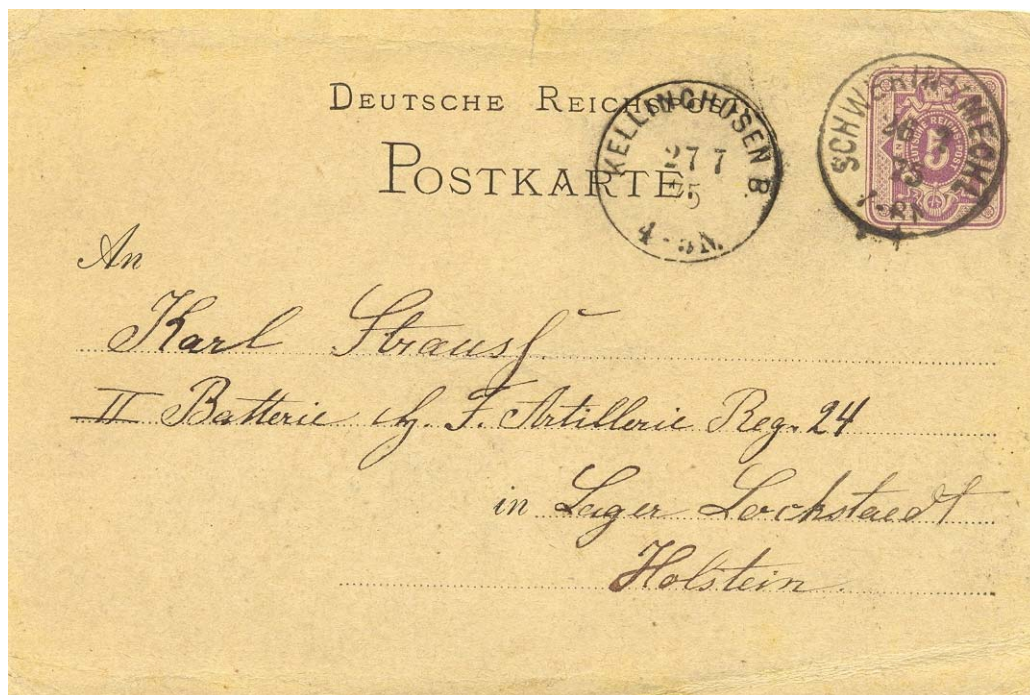 DEUTSCHE REICHSPOST
POSTKARTE
KELLINGHUSEN B.
27 7
4-5N.
SCHWERIN i. MECKL.
26 7
DEUTSCHE REICHS-POST
5
An
Karl Strauss.
II Batterie F. Artillerie Reg. 24
in Lager Lockstaedt
Holstein